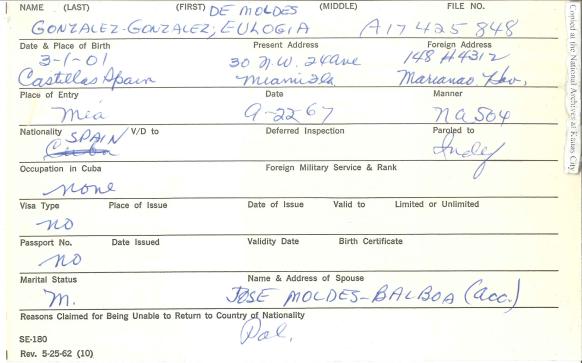 NAME (LAST) (FIRST) DE MOLDES (MIDDLE) FILE NO.
GONZALEZ-GONZALEZ, EULOGIA A17 425 848
Date & Place of Birth Present Address Foreign Address
3-1-01 30 N.W. 24 Ave 148 #4312
Castillas Spain Miami Fla Marianao Hav.
Place of Entry Date Manner
Mia 9-22-67 NA 504
Nationality SPAIN V/D to Deferred Inspection Paroled to
Cuba Indef
Occupation in Cuba Foreign Military Service & Rank
none
Visa Type Place of Issue Date of Issue Valid to Limited or Unlimited
no
Passport No. Date Issued Validity Date Birth Certificate
no
Marital Status Name & Address of Spouse
M. JOSE MOLDES-BALBOA (acc.)
Reasons Claimed for Being Unable to Return to Country of Nationality
Pol.
SE-180
Rev. 5-25-62 (10)
Copied at the National Archives at Kansas City